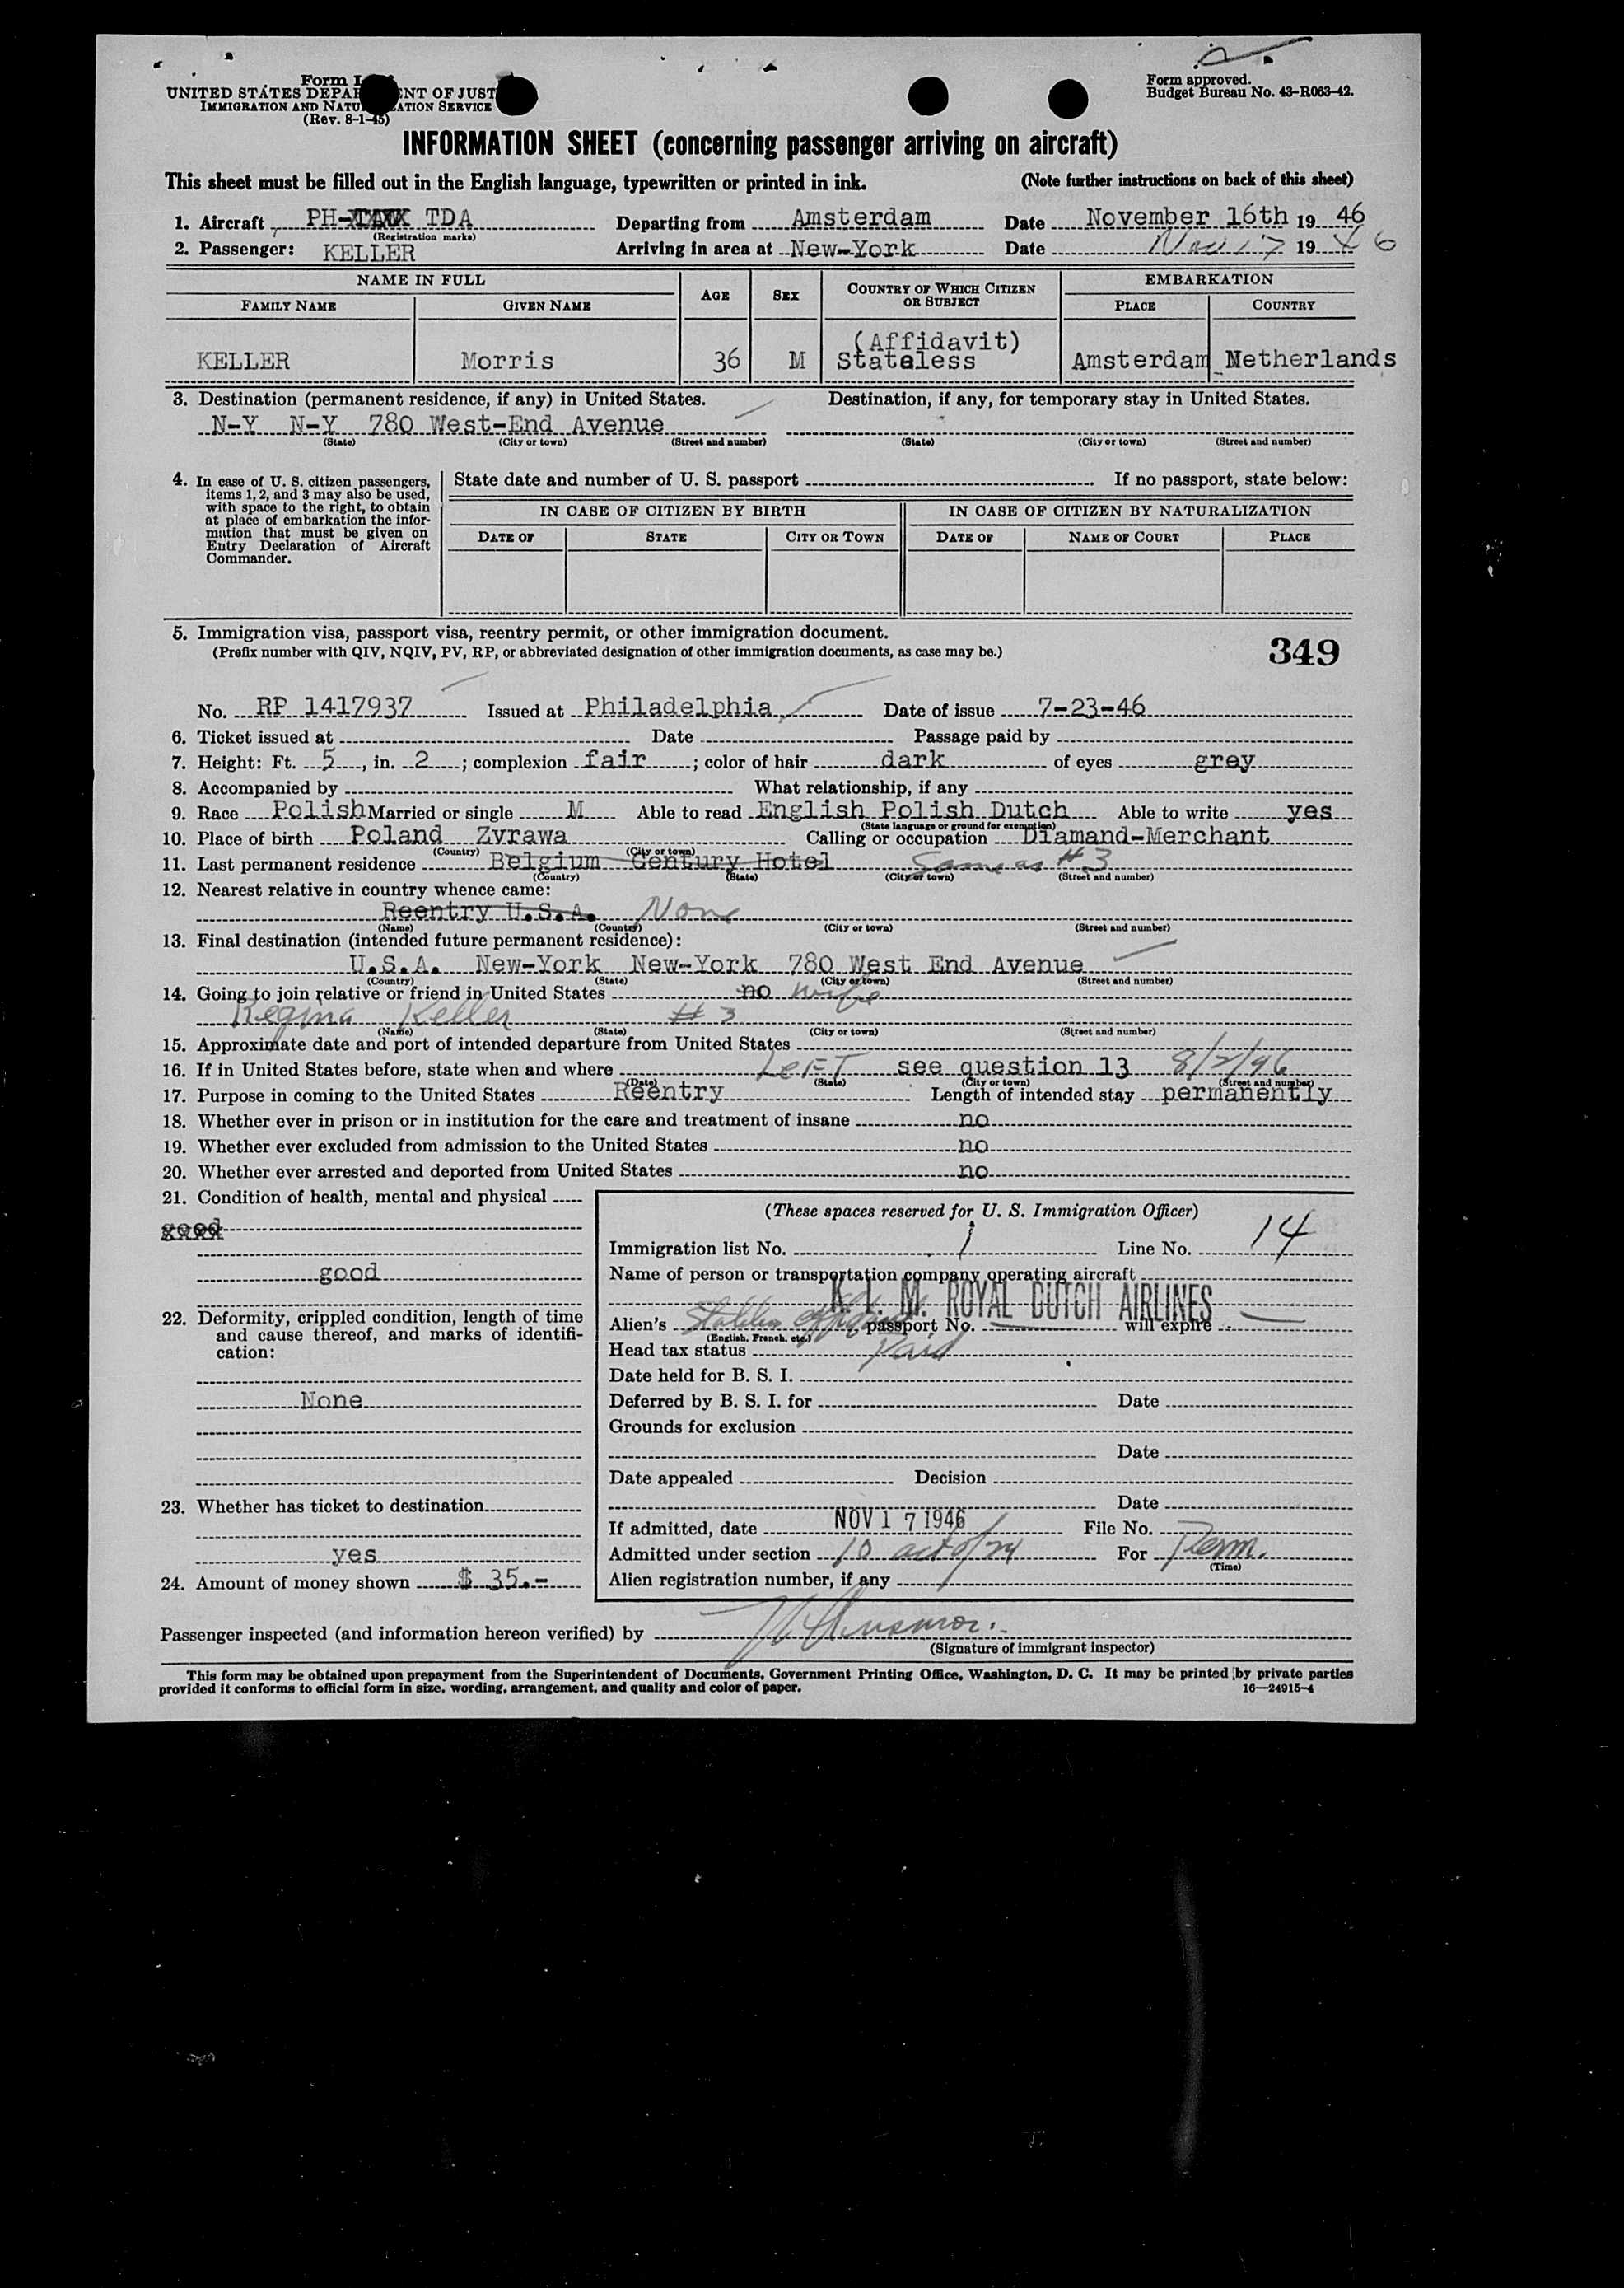 Form I
UNITED STATES DEPAR ENT OF JUST
IMMIGRATION AND NATU ATION SERVICE
(Rev. 8-1-45)
Form approved.
Budget Bureau No. 43-R063-42.
INFORMATION SHEET (concerning passenger arriving on aircraft)
This sheet must be filled out in the English language, typewritten or printed in ink. (Note further instructions on back of this sheet)
1. Aircraft PH- TDA Departing from Amsterdam Date November 16th 19 46
(Registration marks)
2. Passenger: KELLER Arriving in area at New-York Date Nov 17 19 46
NAME IN FULL AGE SEX COUNTRY OF WHICH CITIZEN OR SUBJECT EMBARKATION
FAMILY NAME GIVEN NAME PLACE COUNTRY
(Affidavit)
KELLER Morris 36 M Stateless Amsterdam Netherlands
3. Destination (permanent residence, if any) in United States. Destination, if any, for temporary stay in United States.
N-Y N-Y 780 West-End Avenue
(State) (City or town) (Street and number) (State) (City or town) (Street and number)
4. In case of U. S. citizen passengers,
items 1, 2, and 3 may also be used,
with space to the right, to obtain
at place of embarkation the infor-
mation that must be given on
Entry Declaration of Aircraft
Commander.
State date and number of U. S. passport If no passport, state below:
IN CASE OF CITIZEN BY BIRTH IN CASE OF CITIZEN BY NATURALIZATION
DATE OF STATE CITY OR TOWN DATE OF NAME OF COURT PLACE
5. Immigration visa, passport visa, reentry permit, or other immigration document.
(Prefix number with QIV, NQIV, PV, RP, or abbreviated designation of other immigration documents, as case may be.)
349
No. RP 1417937 Issued at Philadelphia Date of issue 7-23-46
6. Ticket issued at Date Passage paid by
7. Height: Ft. 5, in. 2; complexion fair; color of hair dark of eyes grey
8. Accompanied by What relationship, if any
9. Race Polish Married or single M Able to read English Polish Dutch Able to write yes
(State language or ground for exemption)
10. Place of birth Poland Zvrawa Calling or occupation Diamand-Merchant
(Country) (City or town)
11. Last permanent residence Belgium Century Hotel Same as #3
(Country) (State) (City or town) (Street and number)
12. Nearest relative in country whence came:
Reentry U.S.A. None
(Name) (Country) (City or town) (Street and number)
13. Final destination (intended future permanent residence):
U.S.A. New-York New-York 780 West End Avenue
(Country) (State) (City or town) (Street and number)
14. Going to join relative or friend in United States no wife
Regina Keller #3
(Name) (State) (City or town) (Street and number)
15. Approximate date and port of intended departure from United States
16. If in United States before, state when and where LEFT see question 13 8/2/46
(Date) (State) (City or town) (Street and number)
17. Purpose in coming to the United States Reentry Length of intended stay permanently
18. Whether ever in prison or in institution for the care and treatment of insane no
19. Whether ever excluded from admission to the United States no
20. Whether ever arrested and deported from United States no
21. Condition of health, mental and physical
good
good
22. Deformity, crippled condition, length of time
and cause thereof, and marks of identifi-
cation:
None
23. Whether has ticket to destination
yes
24. Amount of money shown $ 35.-
(These spaces reserved for U. S. Immigration Officer)
Immigration list No. 1 Line No. 14
Name of person or transportation company operating aircraft
K. L. M. ROYAL DUTCH AIRLINES
Alien's Stateless affidavit passport No. will expire
(English, French, etc.)
Head tax status Paid
Date held for B. S. I.
Deferred by B. S. I. for Date
Grounds for exclusion
Date
Date appealed Decision
Date
If admitted, date NOV 17 1946 File No.
Admitted under section 10 act of 24 For Perm.
(Time)
Alien registration number, if any
Passenger inspected (and information hereon verified) by
(Signature of immigrant inspector)
This form may be obtained upon prepayment from the Superintendent of Documents, Government Printing Office, Washington, D. C. It may be printed by private parties
provided it conforms to official form in size, wording, arrangement, and quality and color of paper. 16—24915-4